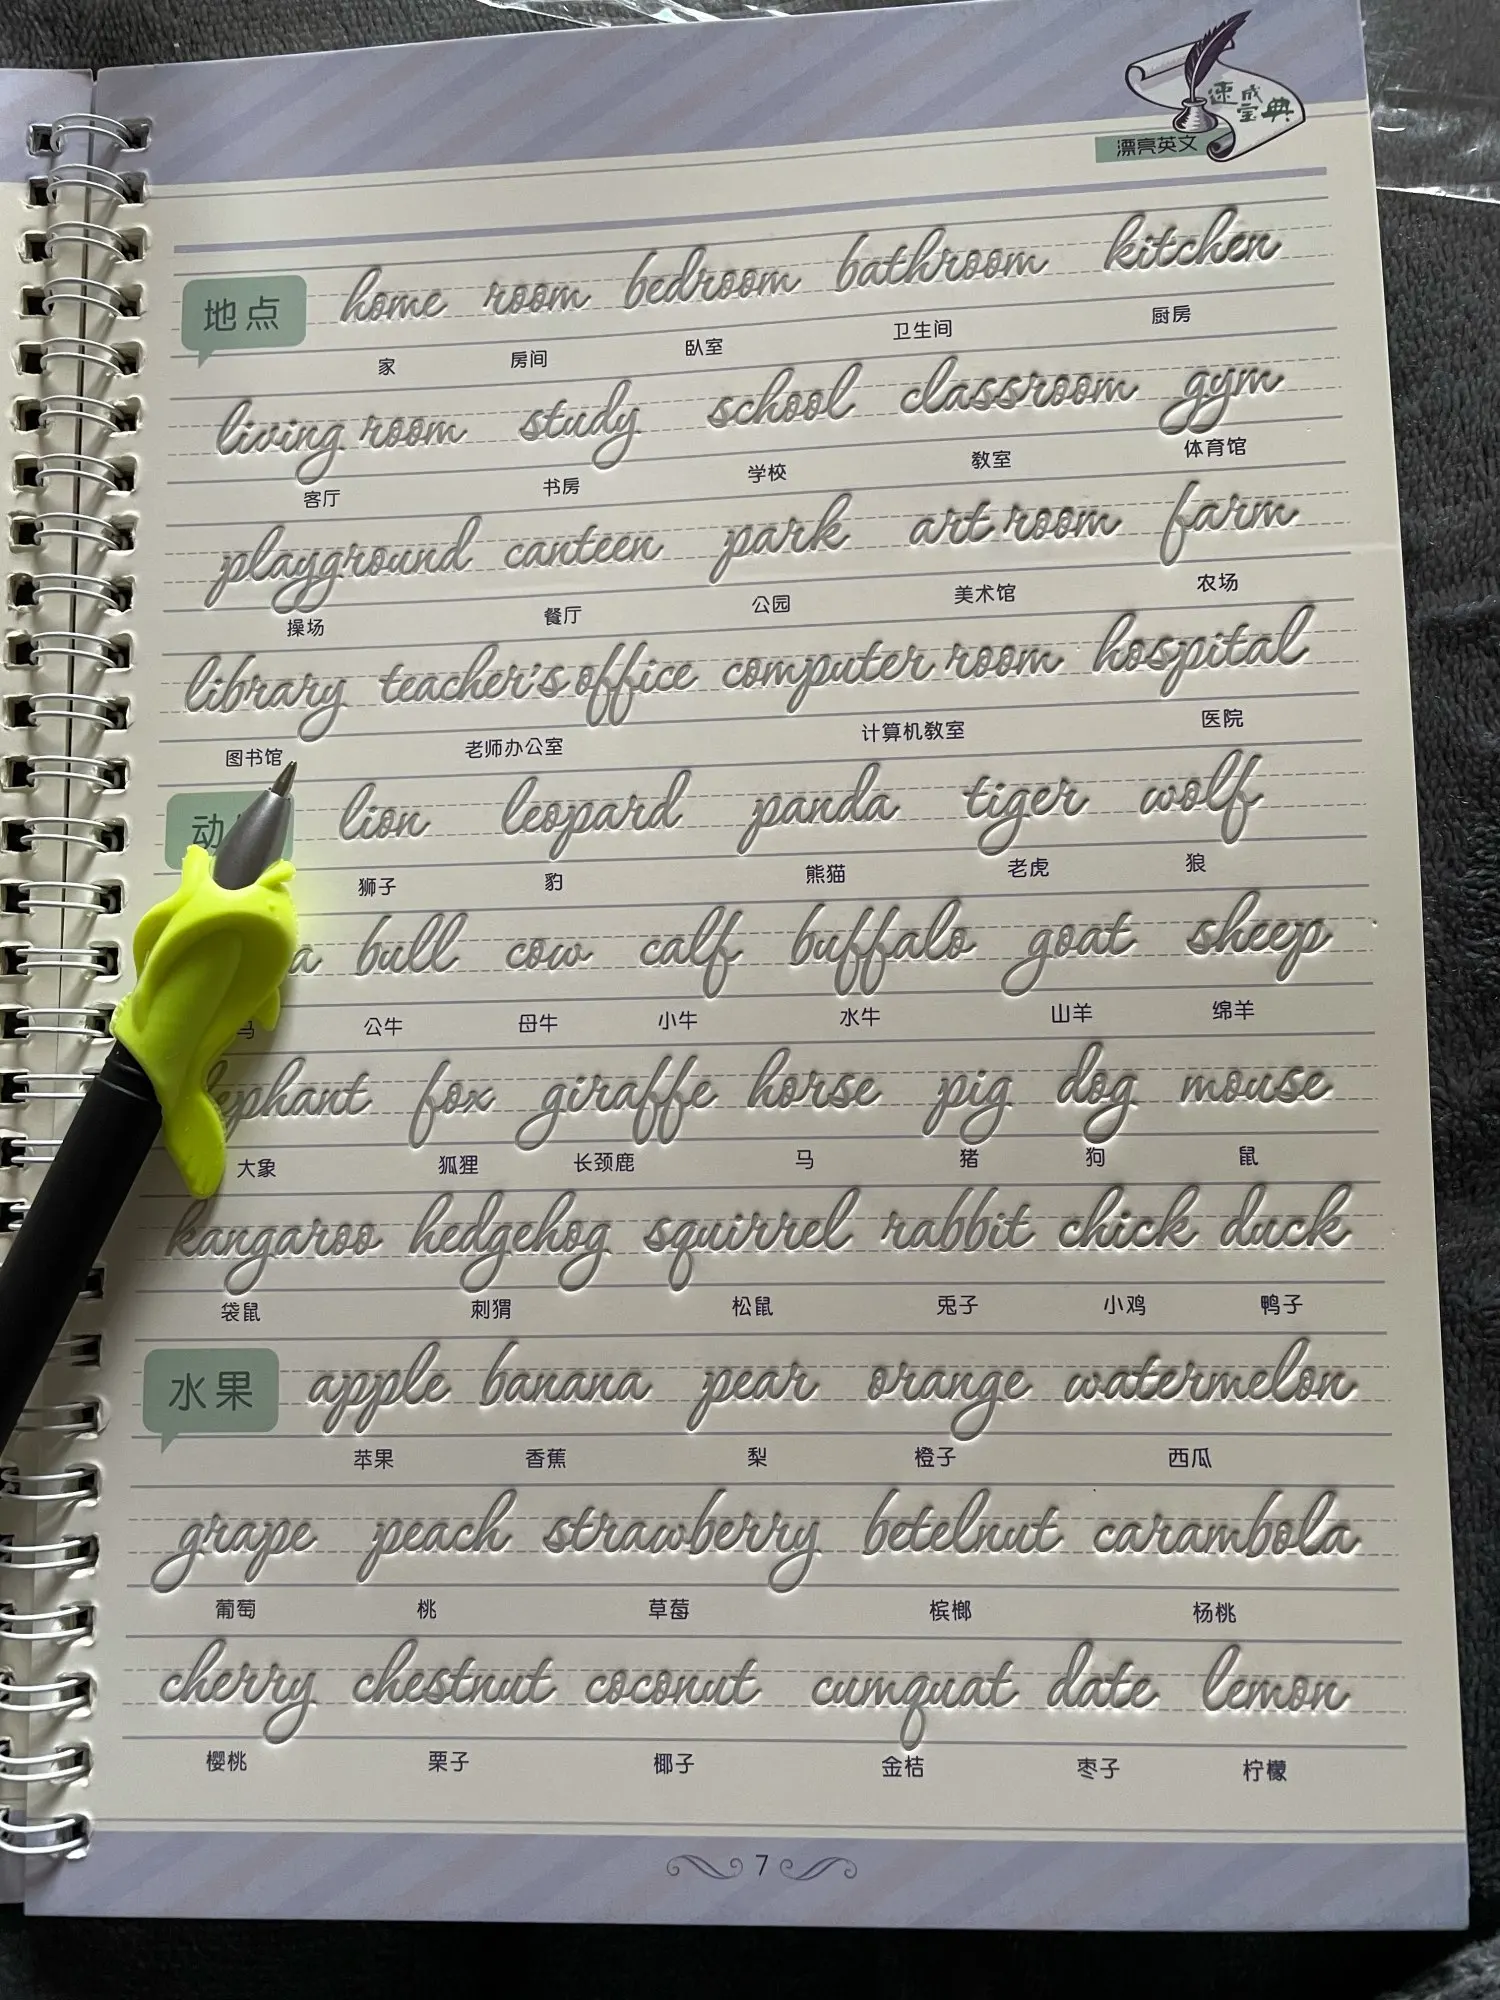 速成宝典
漂亮英文
地点 home room bedroom bathroom kitchen
家 房间 卧室 卫生间 厨房
living room study school classroom gym
客厅 书房 学校 教室 体育馆
playground canteen park art room farm
操场 餐厅 公园 美术馆 农场
library teacher's office computer room hospital
图书馆 老师办公室 计算机教室 医院
动 lion leopard panda tiger wolf
狮子 豹 熊猫 老虎 狼
a bull cow calf buffalo goat sheep
马 公牛 母牛 小牛 水牛 山羊 绵羊
ephant fox giraffe horse pig dog mouse
大象 狐狸 长颈鹿 马 猪 狗 鼠
kangaroo hedgehog squirrel rabbit chick duck
袋鼠 刺猬 松鼠 兔子 小鸡 鸭子
水果 apple banana pear orange watermelon
苹果 香蕉 梨 橙子 西瓜
grape peach strawberry betelnut carambola
葡萄 桃 草莓 槟榔 杨桃
cherry chestnut coconut cumquat date lemon
樱桃 栗子 椰子 金桔 枣子 柠檬
7